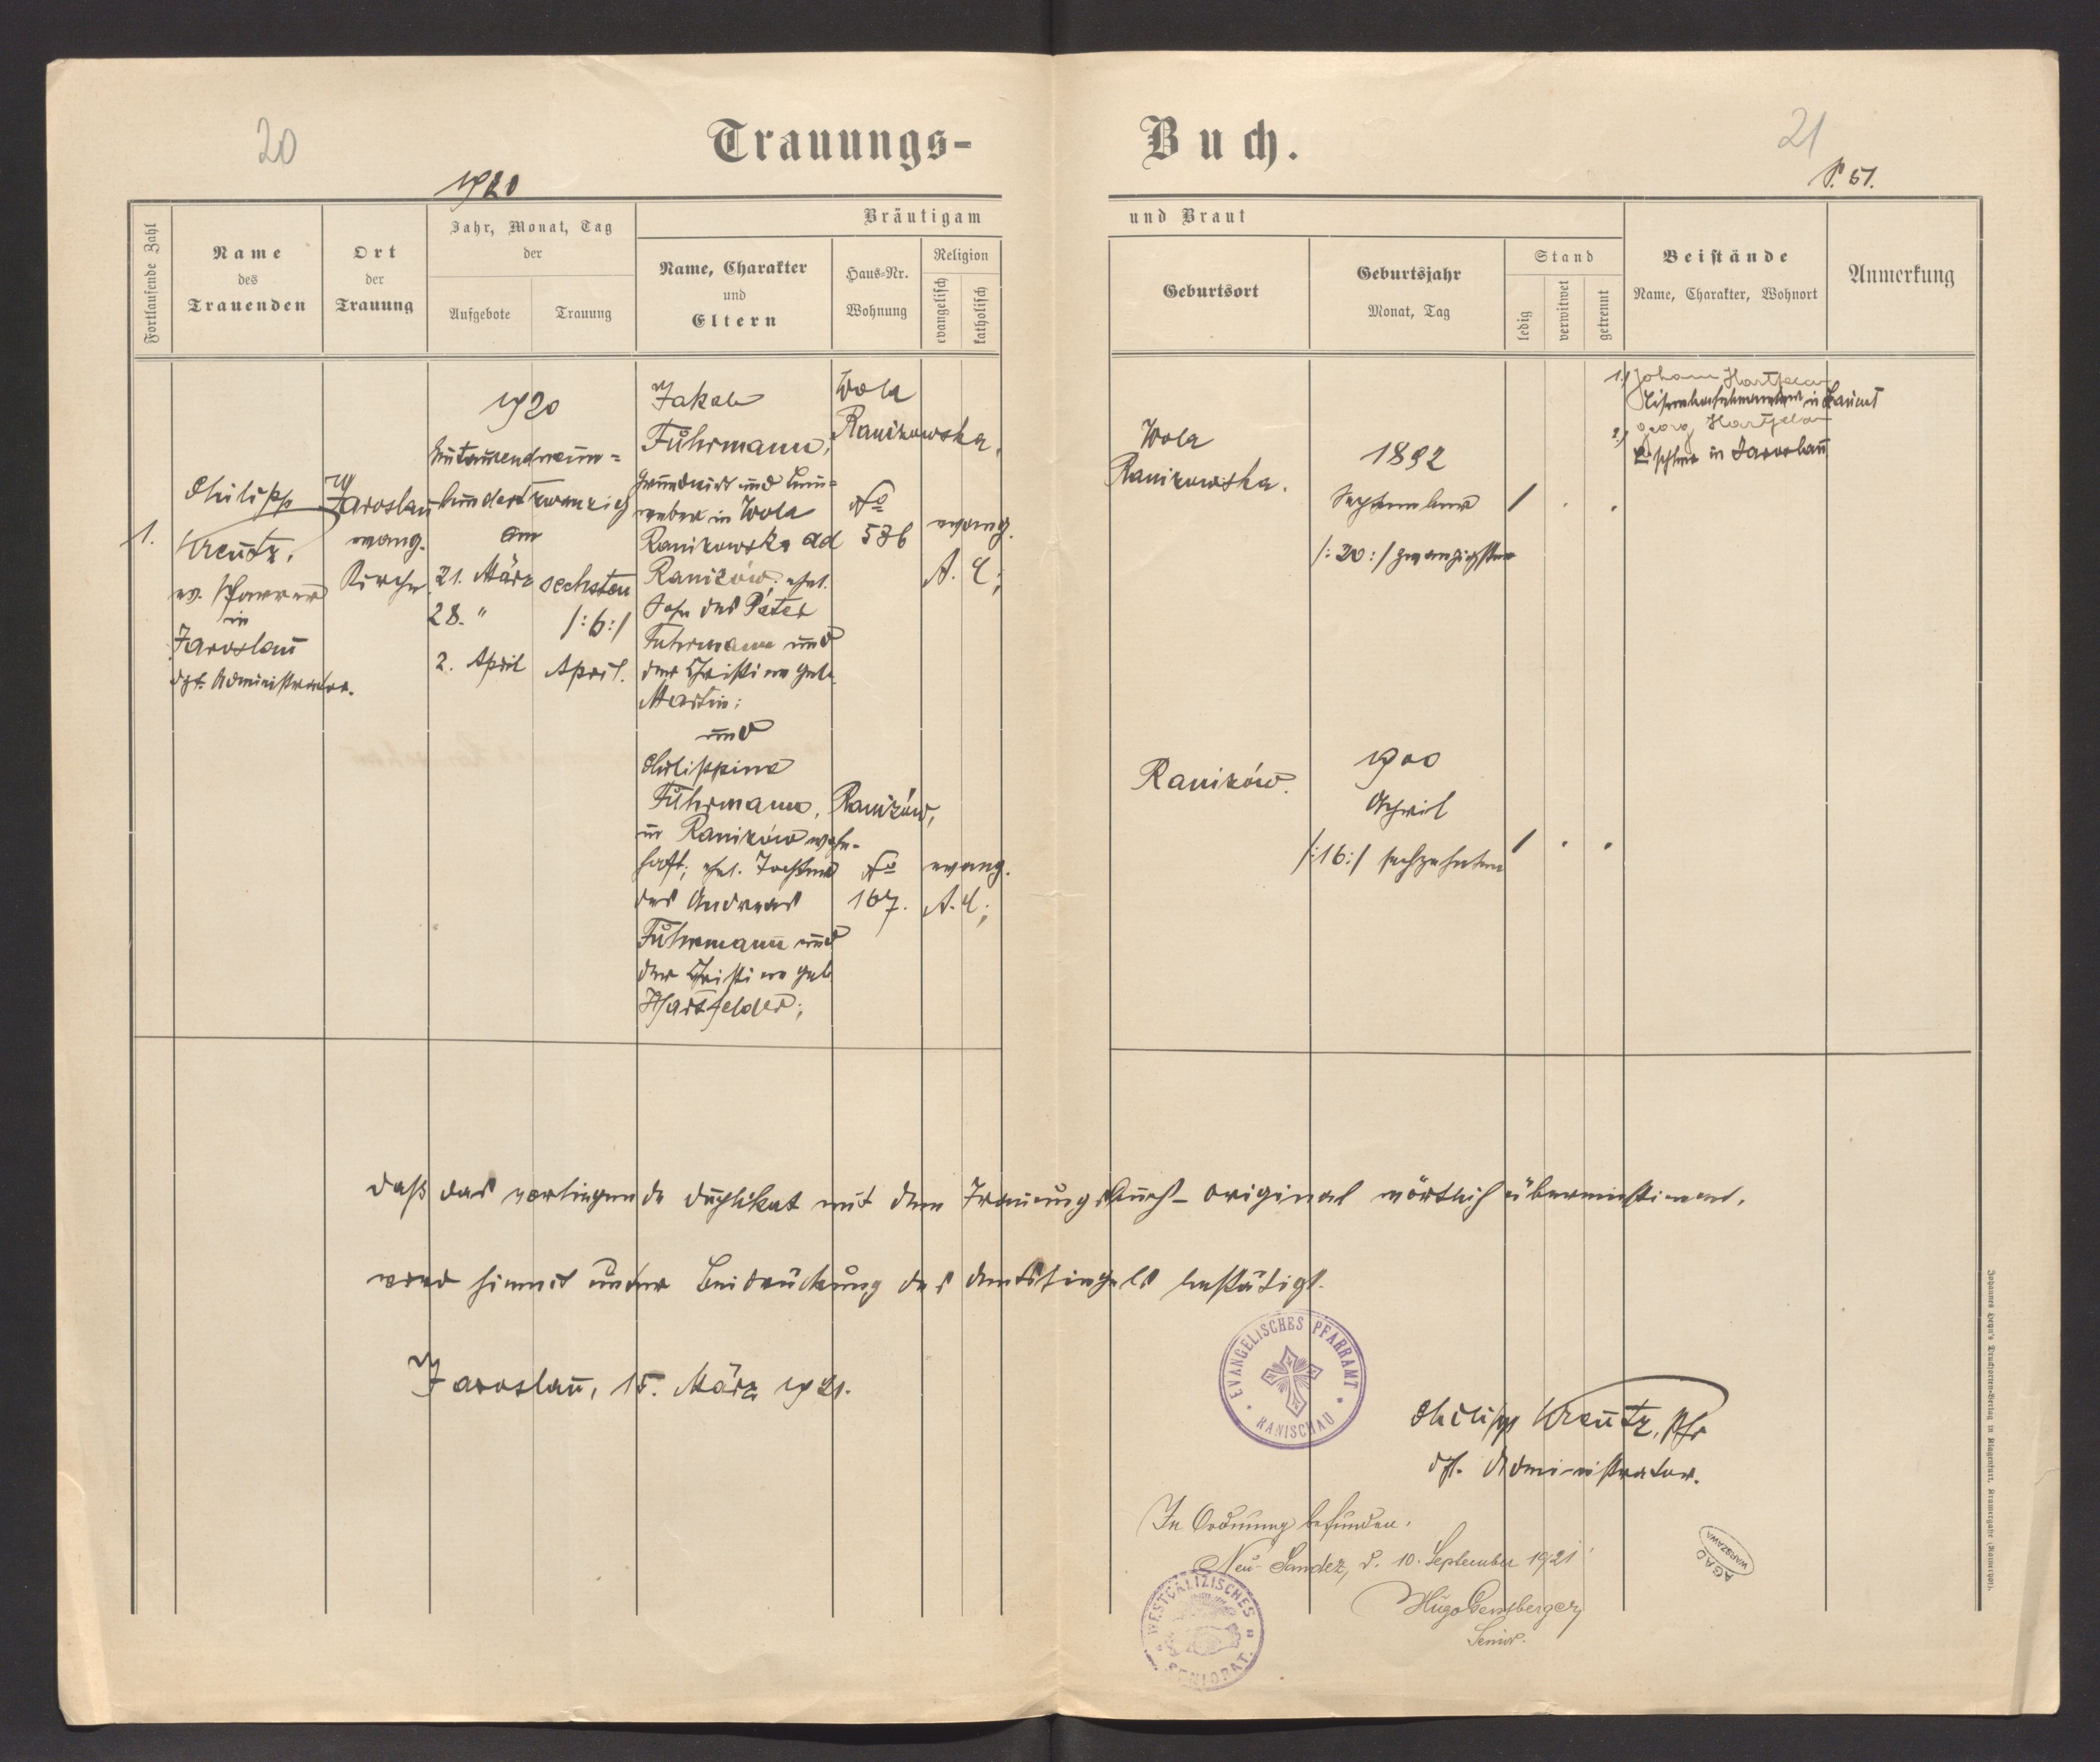 20
Trauungs-
Buch.
21
P. 51.
1920
Fortlaufende Zahl
Name
des
Trauenden
Ort
der
Trauung
Jahr, Monat, Tag
der
Aufgebote
Trauung
Bräutigam
Name, Charakter
und
Eltern
Haus-Nr.
Wohnung
Religion
evangelisch
katholisch
und Braut
Geburtsort
Geburtsjahr
Monat, Tag
Stand
ledig
verwitwet
getrennt
Beistände
Name, Charakter, Wohnort
Anmerkung
1.
Philipp
Kreutz,
ev. Pfarrer
in
Jaroslau
dzt. Administrator.
Jaroslau
evang.
Kirche
1920
Eintausendneun-
hundertzwanzig
am
21. März
28. "
2. April
sechsten
/:6:/
April.
Jakob
Fuhrmann,
Grundwirt und Lein-
weber in Wola
Ranizowska ad
Ranizów. ehel.
Sohn des Peter
Fuhrmann und
der Christine geb.
Martin;
und
Philippine
Fuhrmann,
in Ranizów wohn-
haft; ehel. Tochter
des Andreas
Fuhrmann und
der Christine geb.
Hartfelder;
Wola
Ranizowska,
No
536
evang.
A. C;
Ranizów,
No
167.
evang.
A. C;
Wola
Ranizowska.
1892
September
/:20:/ zwanzigsten
/ . .
Ranizów.
1900
April
/:16:/ sechzehnten
/ . .
1.) Johann
in Lancut
2.) Georg
Tischler in Jaroslau
Daß das vorliegende Duplikat mit dem Trauungsbuch-Original wörtlich übereinstimmt,
wird hiemit unter Beidrückung des Amtssiegels bestätigt.
Jaroslau, 15. März 1921.
EVANGELISCHES PFARRAMT
RANISCHAU
Philipp Kreutz, Pfr
dzt. Administrator.
In Ordnung befunden.
Neu-Sandez, d. 10. September 1921
Hugo
Senior.
WESTGALIZISCHES
SENIORAT.
AGAD
WARSZAWA